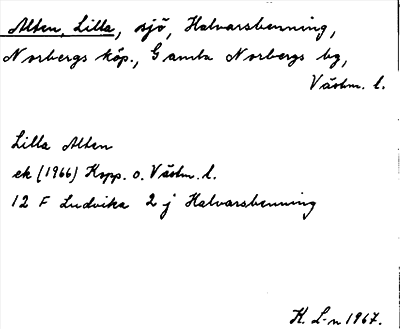 Alten, Lilla, sjö, Halvarsbenning,
Norbergs köp., Gamla Norbergs bg,
Västm. l.
Lilla Alten
ek (1966) Kopp. o. Västm. l.
12 F Ludvika 2 j Halvarsbenning
K. L-n 1967.